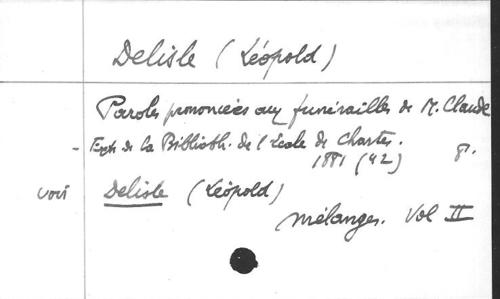 Delisle (Léopold)
Paroles prononcées aux funérailles de M. Claude
- Extr. de la Biblioth. de l'Ecole de Chartes.
1881 (42) 8°.
voir Delisle (Léopold)
Mélanges. Vol II